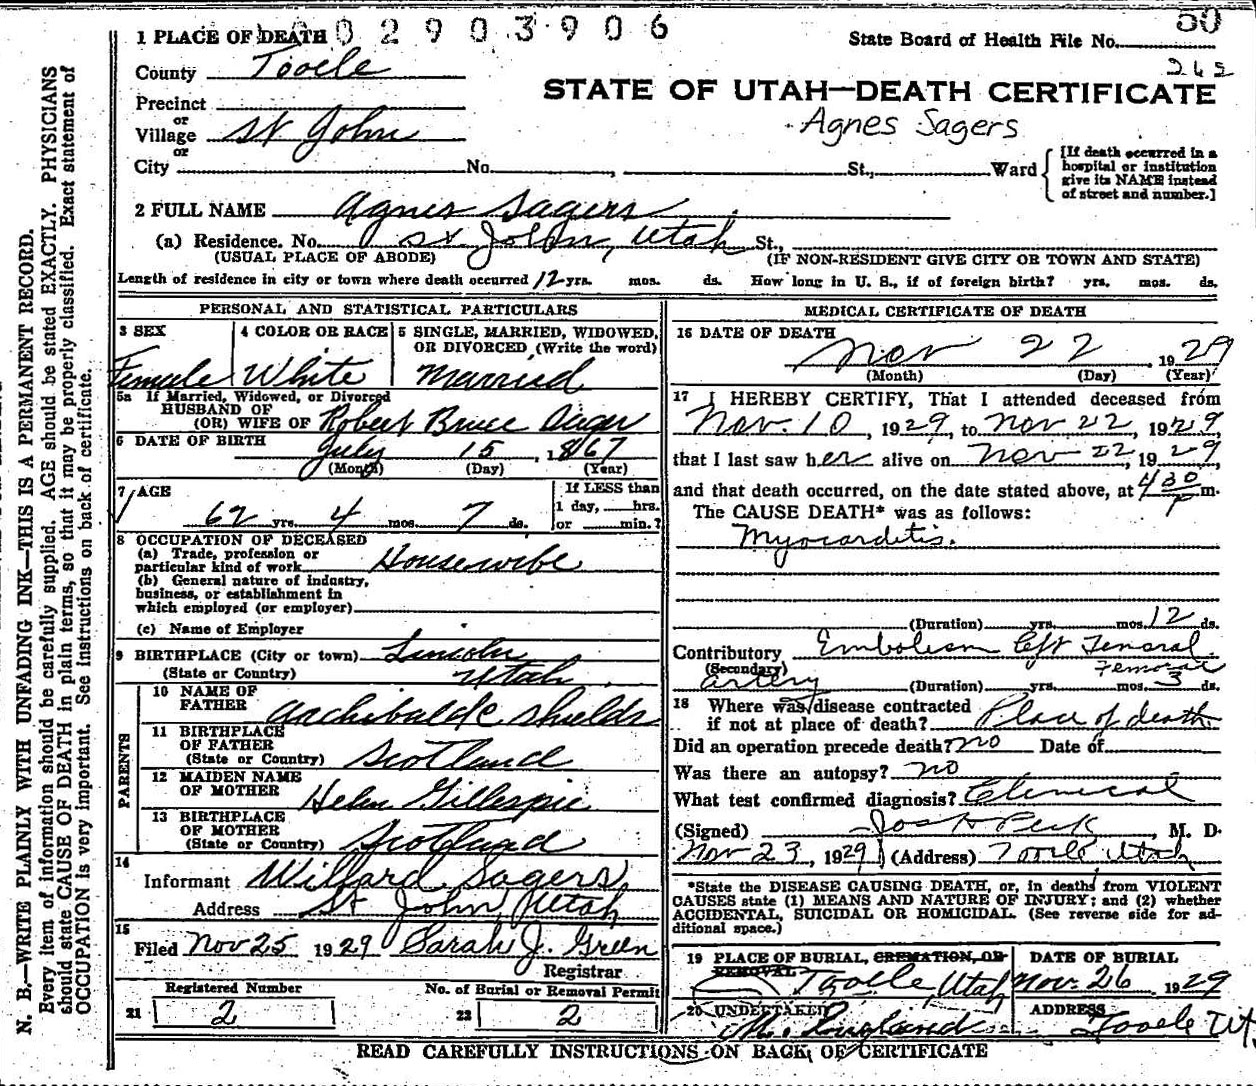 1 PLACE OF DEATH 0 2 9 0 3 9 0 6
50
State Board of Health File No.
262
County Tooele
STATE OF UTAH—DEATH CERTIFICATE
Precinct
or
Village St John
Agnes Sagers
or
City No. , St., Ward
[If death occurred in a
hospital or institution
give its NAME instead
of street and number.]
2 FULL NAME Agnes Sagers
(a) Residence. No. St John, Utah St.,
(USUAL PLACE OF ABODE) (IF NON-RESIDENT GIVE CITY OR TOWN AND STATE)
Length of residence in city or town where death occurred 12 yrs. mos. ds. How long in U. S., if of foreign birth? yrs. mos. ds.
PERSONAL AND STATISTICAL PARTICULARS
3 SEX
Female
4 COLOR OR RACE
White
5 SINGLE, MARRIED, WIDOWED,
OR DIVORCED (Write the word)
Married
5a If Married, Widowed, or Divorced
HUSBAND OF
(OR) WIFE OF Robert Bruce Sager
6 DATE OF BIRTH
July 15, 1867
(Month) (Day) (Year)
7 AGE
62 yrs. 4 mos. 7 ds.
If LESS than
1 day, hrs.
or min.?
8 OCCUPATION OF DECEASED
(a) Trade, profession or
particular kind of work Housewife
(b) General nature of industry,
business, or establishment in
which employed (or employer)
(c) Name of Employer
9 BIRTHPLACE (City or town) Lincoln
(State or Country) Utah
PARENTS
10 NAME OF
FATHER Archibald C Shields
11 BIRTHPLACE
OF FATHER
(State or Country) Scotland
12 MAIDEN NAME
OF MOTHER Helen Gillespie
13 BIRTHPLACE
OF MOTHER
(State or Country) Scotland
14
Informant Willard Sagers
Address St John, Utah
15
Filed Nov 25 1929 Sarah J. Green
Registrar
Registered Number No. of Burial or Removal Permit
21 2 22 2
MEDICAL CERTIFICATE OF DEATH
16 DATE OF DEATH
Nov 22, 1929
(Month) (Day) (Year)
17 I HEREBY CERTIFY, That I attended deceased from
Nov. 10, 1929, to Nov 22, 1929,
that I last saw her alive on Nov 22, 1929,
and that death occurred, on the date stated above, at 4 30 P m.
The CAUSE DEATH* was as follows:
Myocarditis.
(Duration) yrs. mos. 12 ds.
Contributory Embolism left Femoral
(Secondary) Femoral
artery (Duration) yrs. mos. 3 ds.
18 Where was disease contracted
if not at place of death? Place of death
Did an operation precede death? no Date of
Was there an autopsy? no
What test confirmed diagnosis? Clinical
(Signed) Jos H Peck, M. D.
Nov 23, 1929 (Address) Tooele Utah
*State the DISEASE CAUSING DEATH, or, in deaths from VIOLENT
CAUSES state (1) MEANS AND NATURE OF INJURY; and (2) whether
ACCIDENTAL, SUICIDAL OR HOMICIDAL. (See reverse side for ad-
ditional space.)
19 PLACE OF BURIAL, CREMATION, OR
REMOVAL
Tooele Utah
DATE OF BURIAL
Nov. 26 1929
20 UNDERTAKER
M. England
ADDRESS
Tooele Ut
READ CAREFULLY INSTRUCTIONS ON BACK OF CERTIFICATE
N. B.—WRITE PLAINLY WITH UNFADING INK—THIS IS A PERMANENT RECORD.
Every item of information should be carefully supplied. AGE should be stated EXACTLY. PHYSICIANS
should state CAUSE OF DEATH in plain terms, so that it may be properly classified. Exact statement of
OCCUPATION is very important. See instructions on back of certificate.